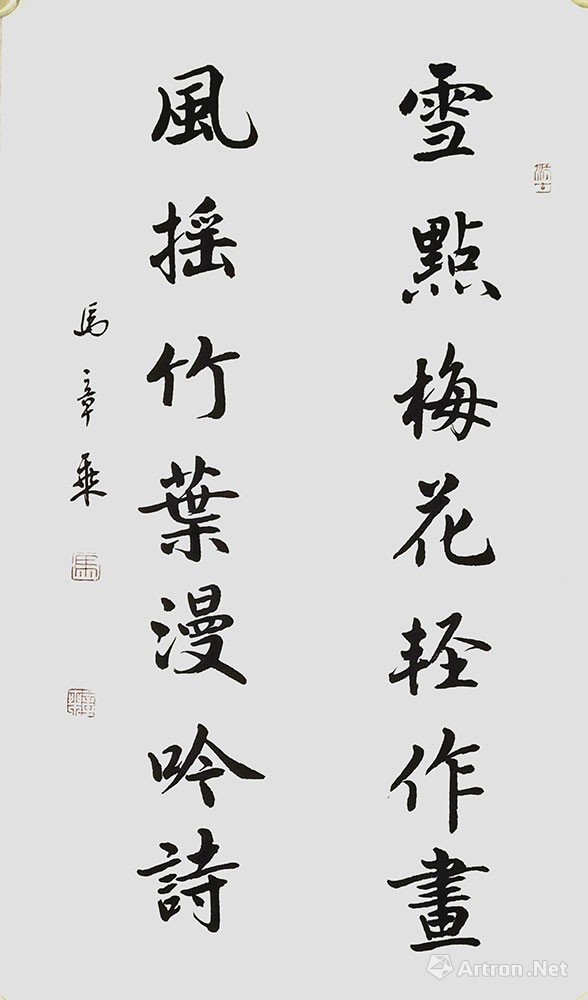 雪點梅花輕作畫
風摇竹葉漫吟詩
馬章乘
Artron.Net